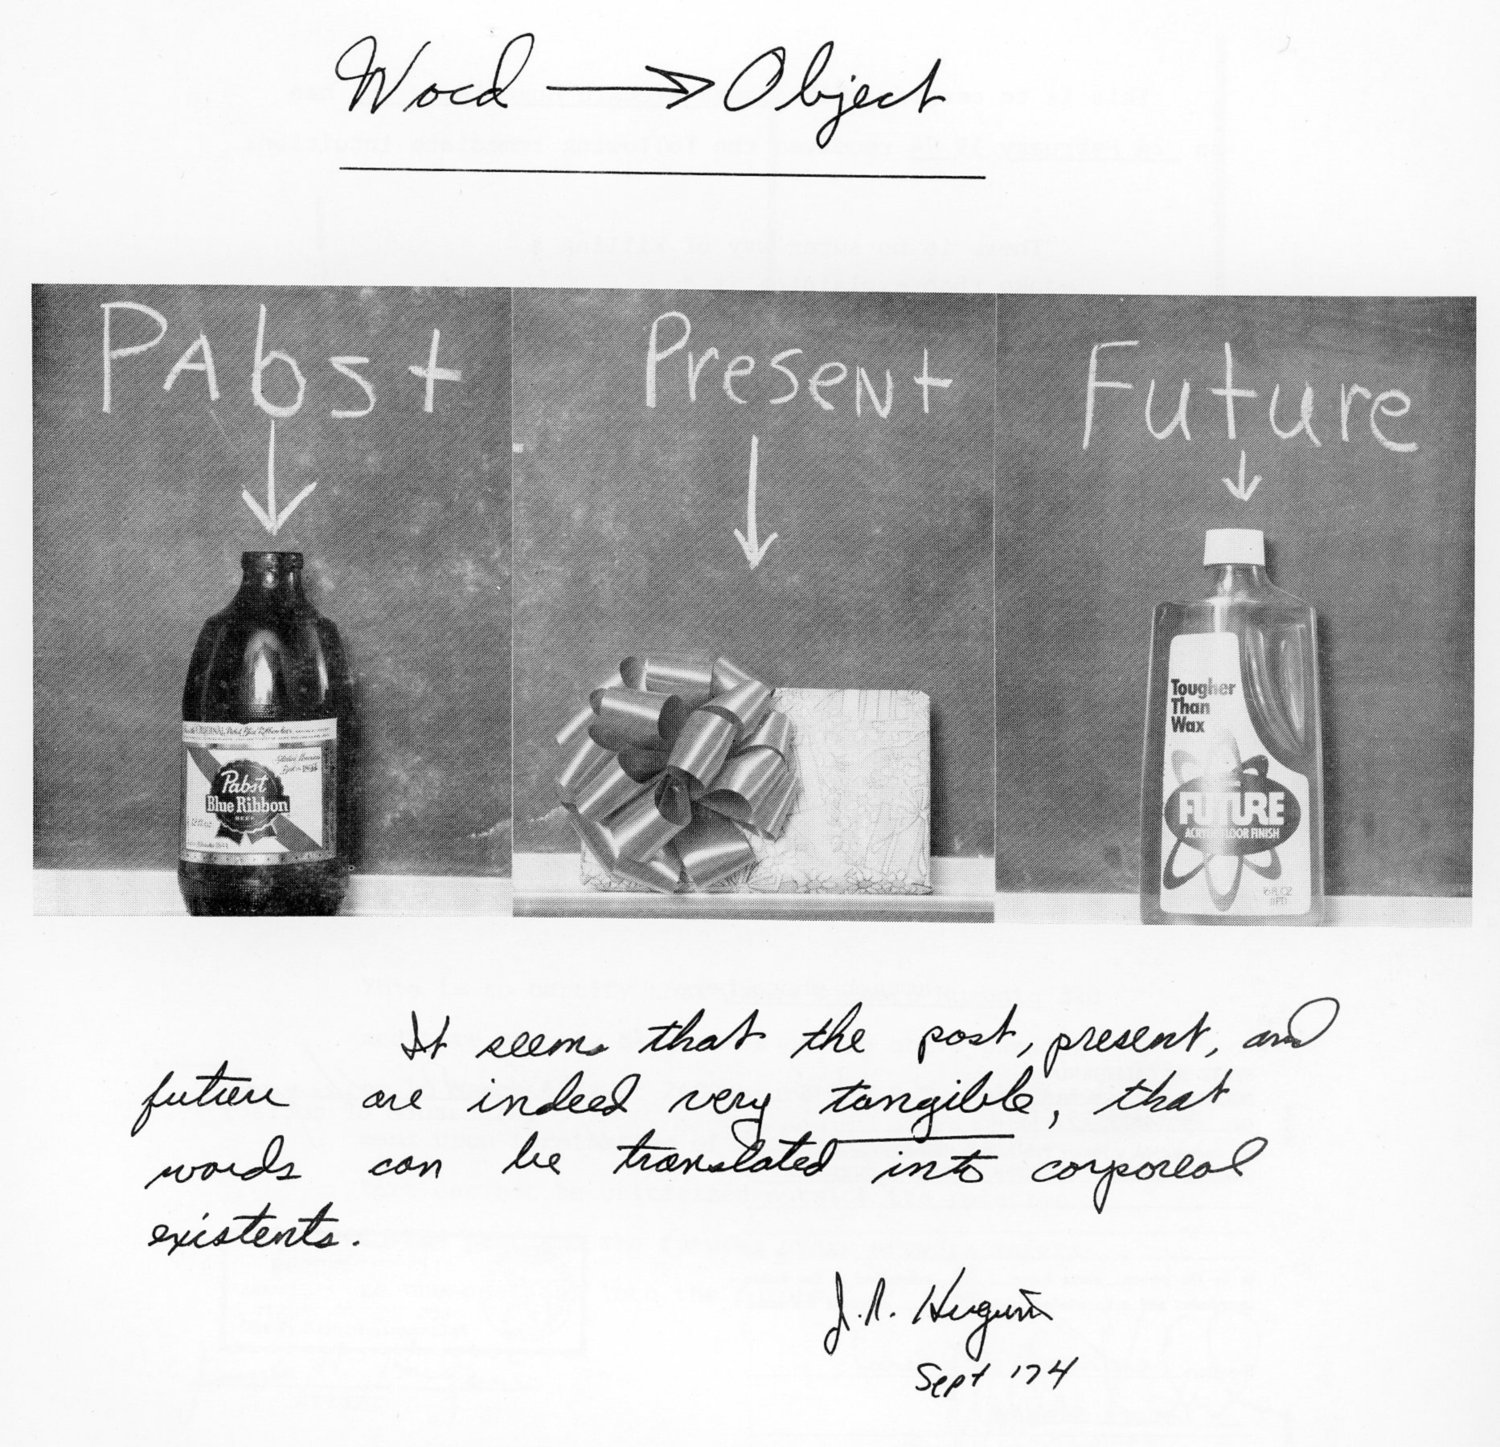 Word → Object
PAbst
Present
Future
Pabst
Blue Ribbon
BEER
Tougher
Than
Wax
FUTURE
ACRYLIC FLOOR FINISH
It seems that the past, present, and
future are indeed very tangible, that
words can be translated into corporeal
existents.
J. R. Huguni
Sept '74